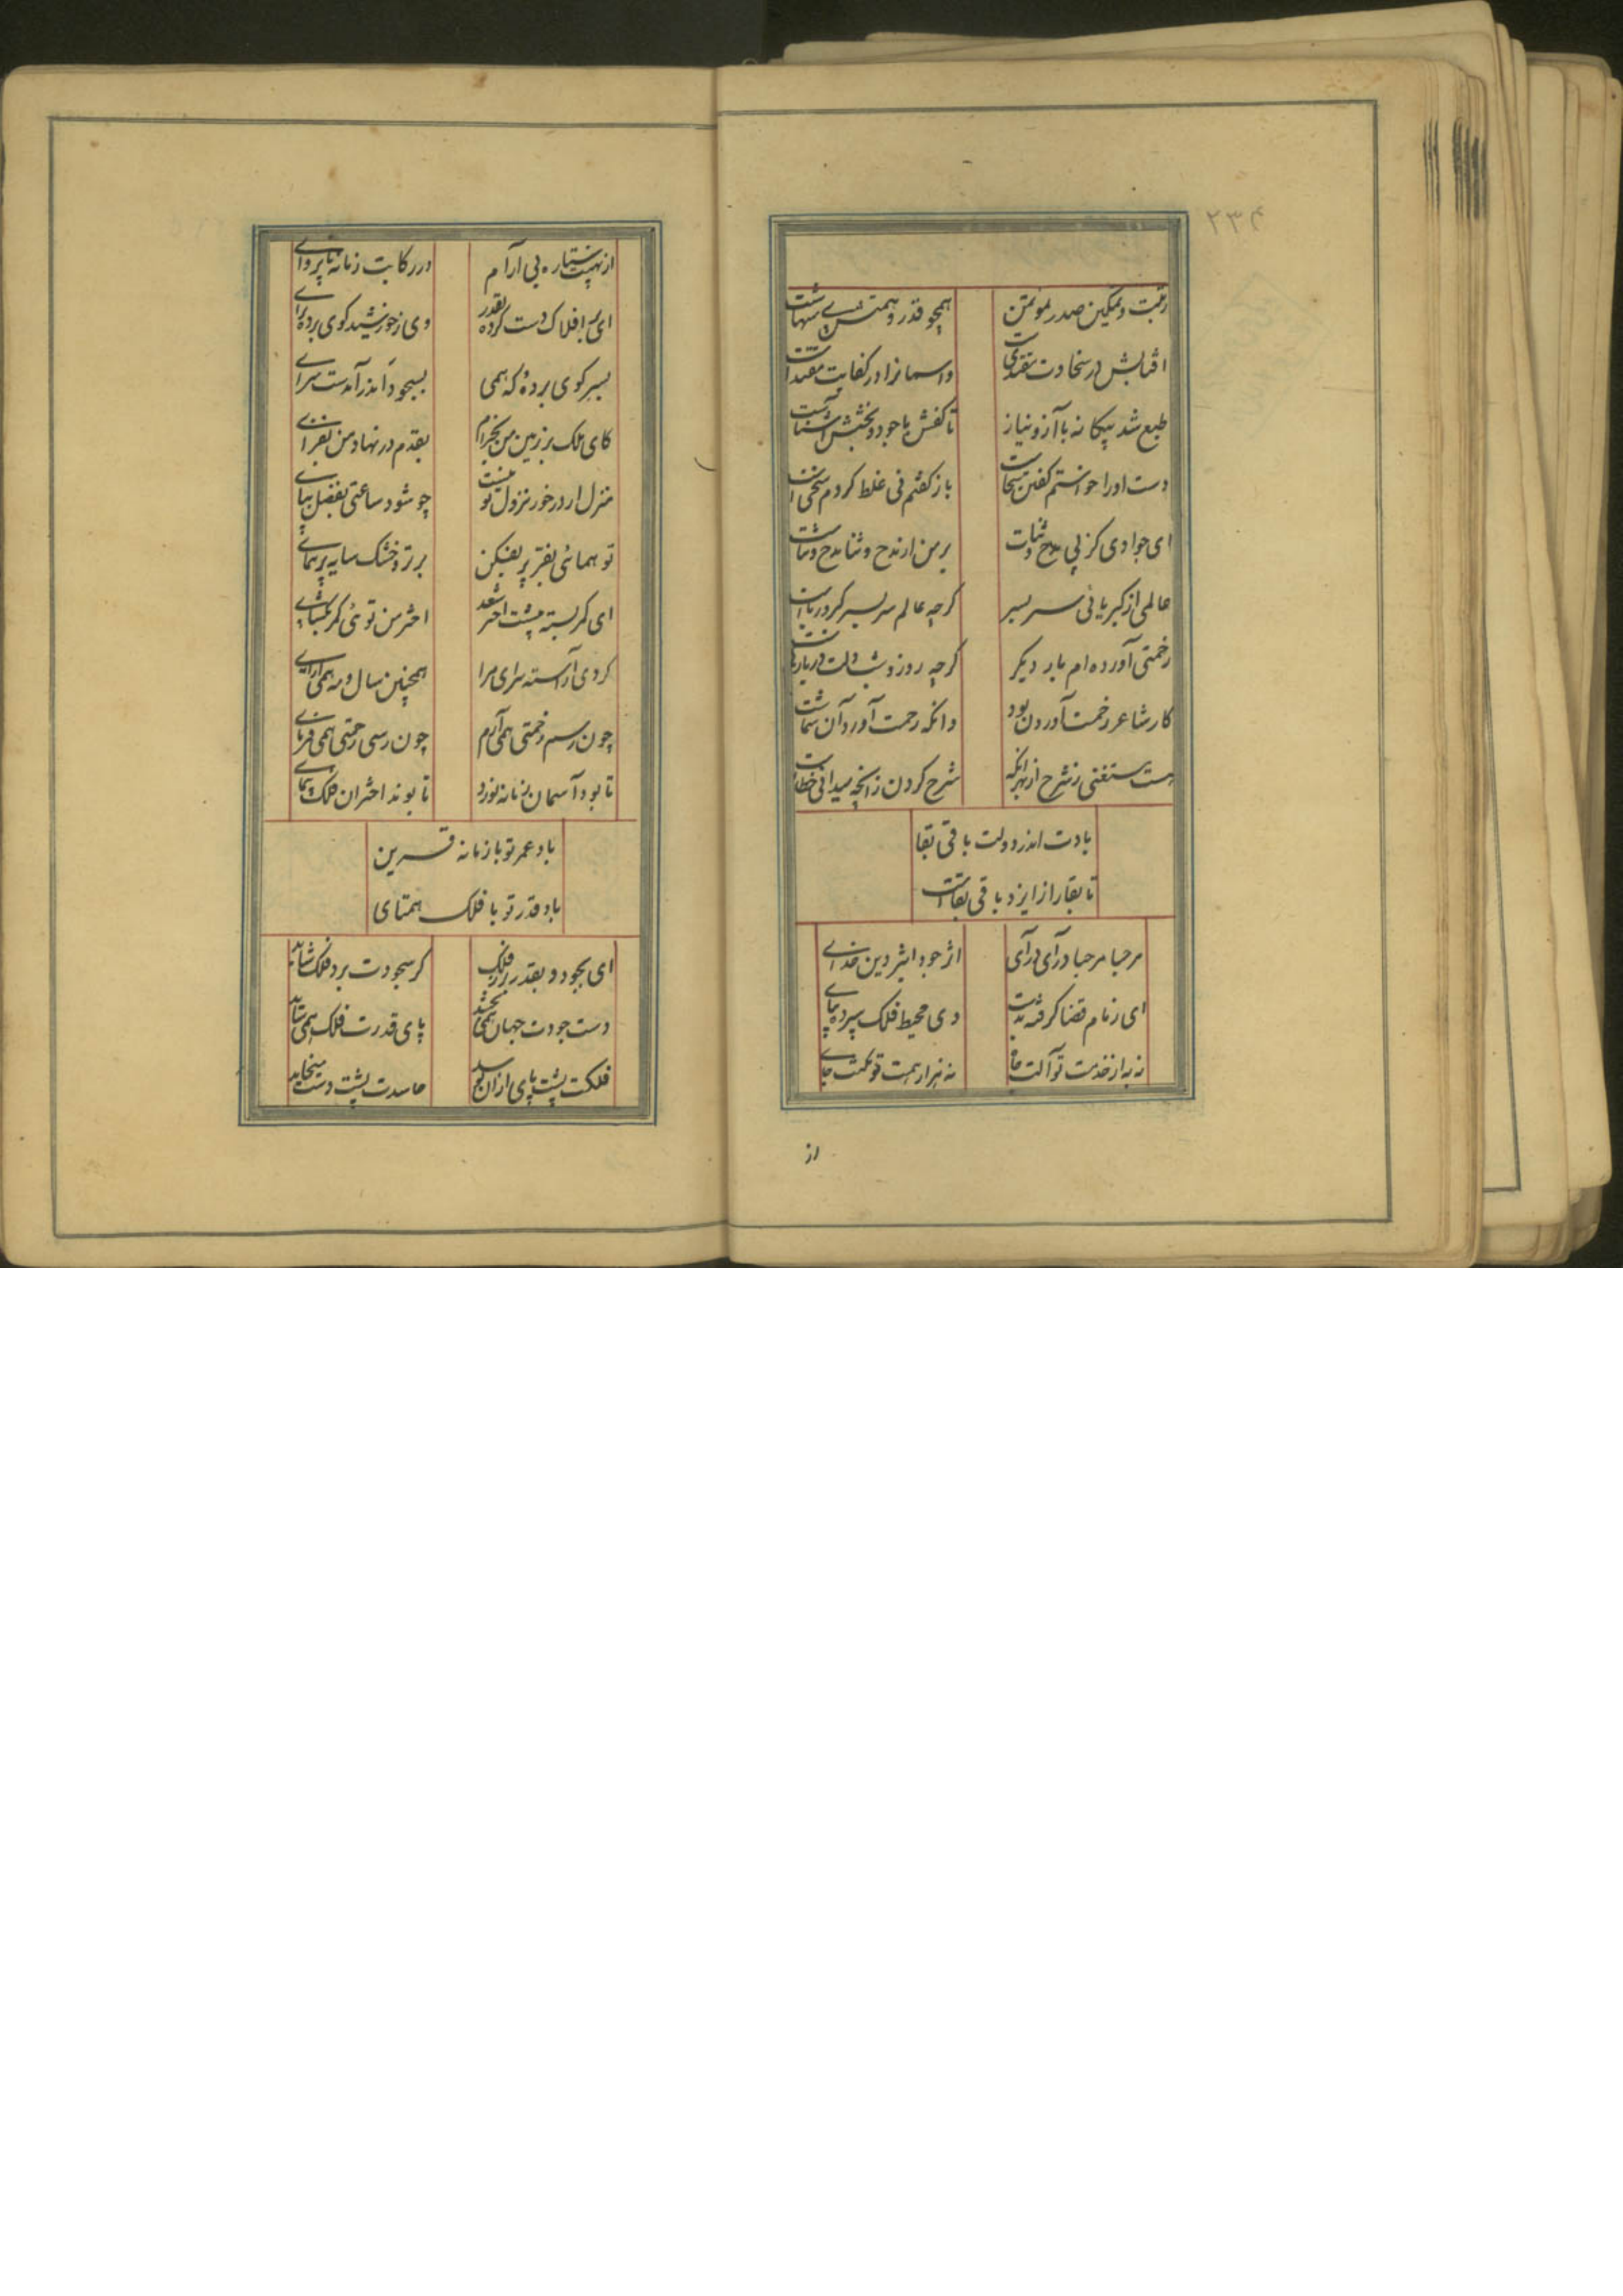 ۲۳۴
رتبت و تمکین صدر موتمن
همچو قدر و همتش بی منتهاست
آفتابش در سخاوت مقتدیست
واسمانرا در کفایت مقتداست
طبع شد بیکانه با آز و نیاز
تا کفش با جود و بخشش آشناست
دست اورا خواستم کفتن سخاست
باز کفتم نی غلط کردم سخی است
ای جوادی کز پی مدح و ثنات
بر من از مدح و ثنا مدح و ثناست
عالمی از کبریائی سر بسر
کرچه عالم سر بسر کبر و ریاست
زحمتی آورده ام بار دیکر
کرچه روز و شب دلت در بار
کار شاعر زحمت آوردن بود
وانکه رحمت آورد آن شماست
هست مستغنی ز شرح از بهر انکه
شرح کردن زانچه میدانی خطاست
بادت اندر دولت باقی بقا
تا بقا را از ایزد باقی بقاست
مرحبا مرحبا درآی درآی
اثر جود اثیر دین خدای
ای زمام قضا کرفته بدست
وی محیط فلک سپرده بپای
نه به از خدمت تو آلت
نه به از همت تو مکنت جای
از
از نهیبت ستاره بی آرام
در رکابت زمانه ناپروای
ای بر افلاک دست کرده بقدر
وی ز خورشید کوی برده برای
بسر کوی برده که همی
بسجود اندر آمدت سرای
کای ملک بر زمین من بخرام
بقدم در نهاد من بفزای
منزل ار در خور نزول تو نیست
چو شود ساعتی بفضل بپای
تو همائی بفقر پر بفکن
بر تر و خشک سایه پر همای
ای کمر بسته پیشت اختر سعد
اختر من توئی کمر بکشای
کردی آراسته سرای مرا
همچنین سال و مه همی آرای
چون رسم زحمتی همی آرم
چون رسی رحمتی همی فرمای
تا بود آسمان زمانه نورد
تا بوند اختران فلک پیمای
باد عمر تو با زمانه قرین
باد قدر تو با فلک همتای
ای بجود و بقدر از فلک
کر سجودت برد فلک شاید
دست جودت جهان همی بخشد
پای قدرت فلک همی ساید
فلکت پشت پای ازان بوسد
حاسدت پشت دست میخاید